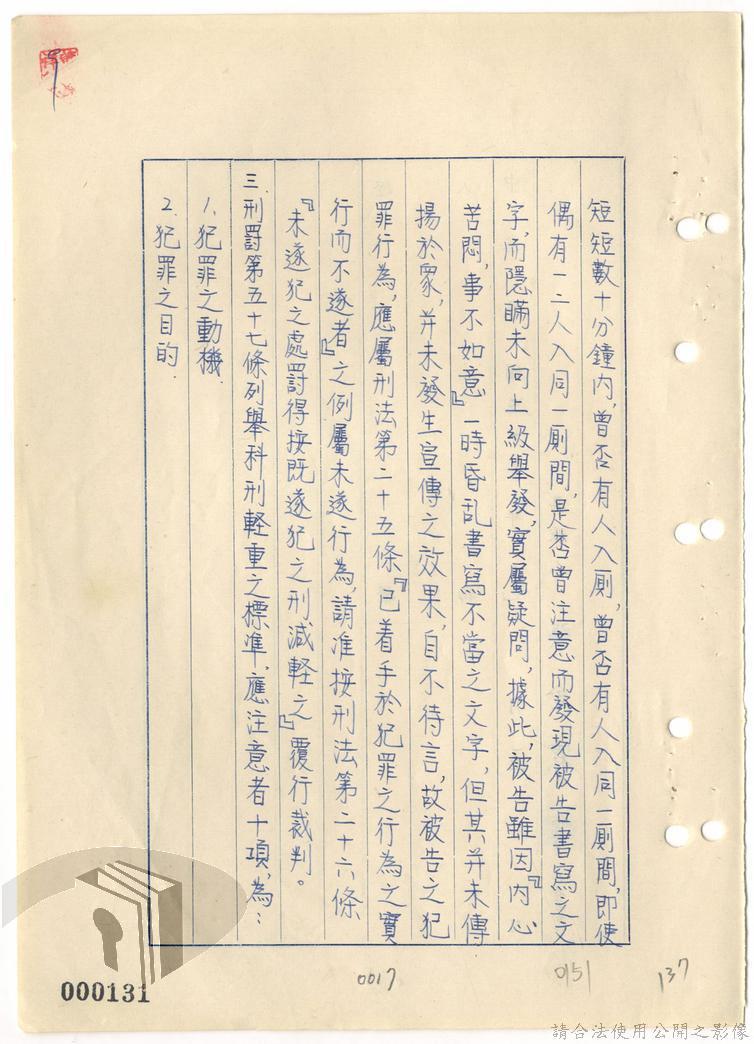 短短數十分鐘內，曾否有人入厠，曾否有人入同一厠間，即使
偶有一二人入同一厠間，是否曾注意而發現被告書寫之文
字，而隱瞞未向上級舉發，實屬疑問，據此，被告雖因『內心
苦悶，事不如意』一時昏乱書寫不當之文字，但其并未傳
揚於眾，并未發生宣傳之效果，自不待言，故被告之犯
罪行為，應屬刑法第二十五條『已着手於犯罪之行為之實
行而不遂者』之例屬未遂行為，請准按刑法第二十六條
『未遂犯之處罰得按既遂犯之刑減軽之』覆行裁判。
三.刑罰第五十七條列舉科刑軽重之標準，應注意者十項，為：
1.犯罪之動機.
2.犯罪之目的.
000131
0017
0151
137
請合法使用公開之影像